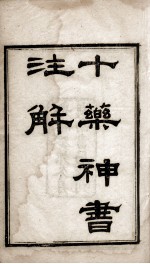 十藥神書
注解